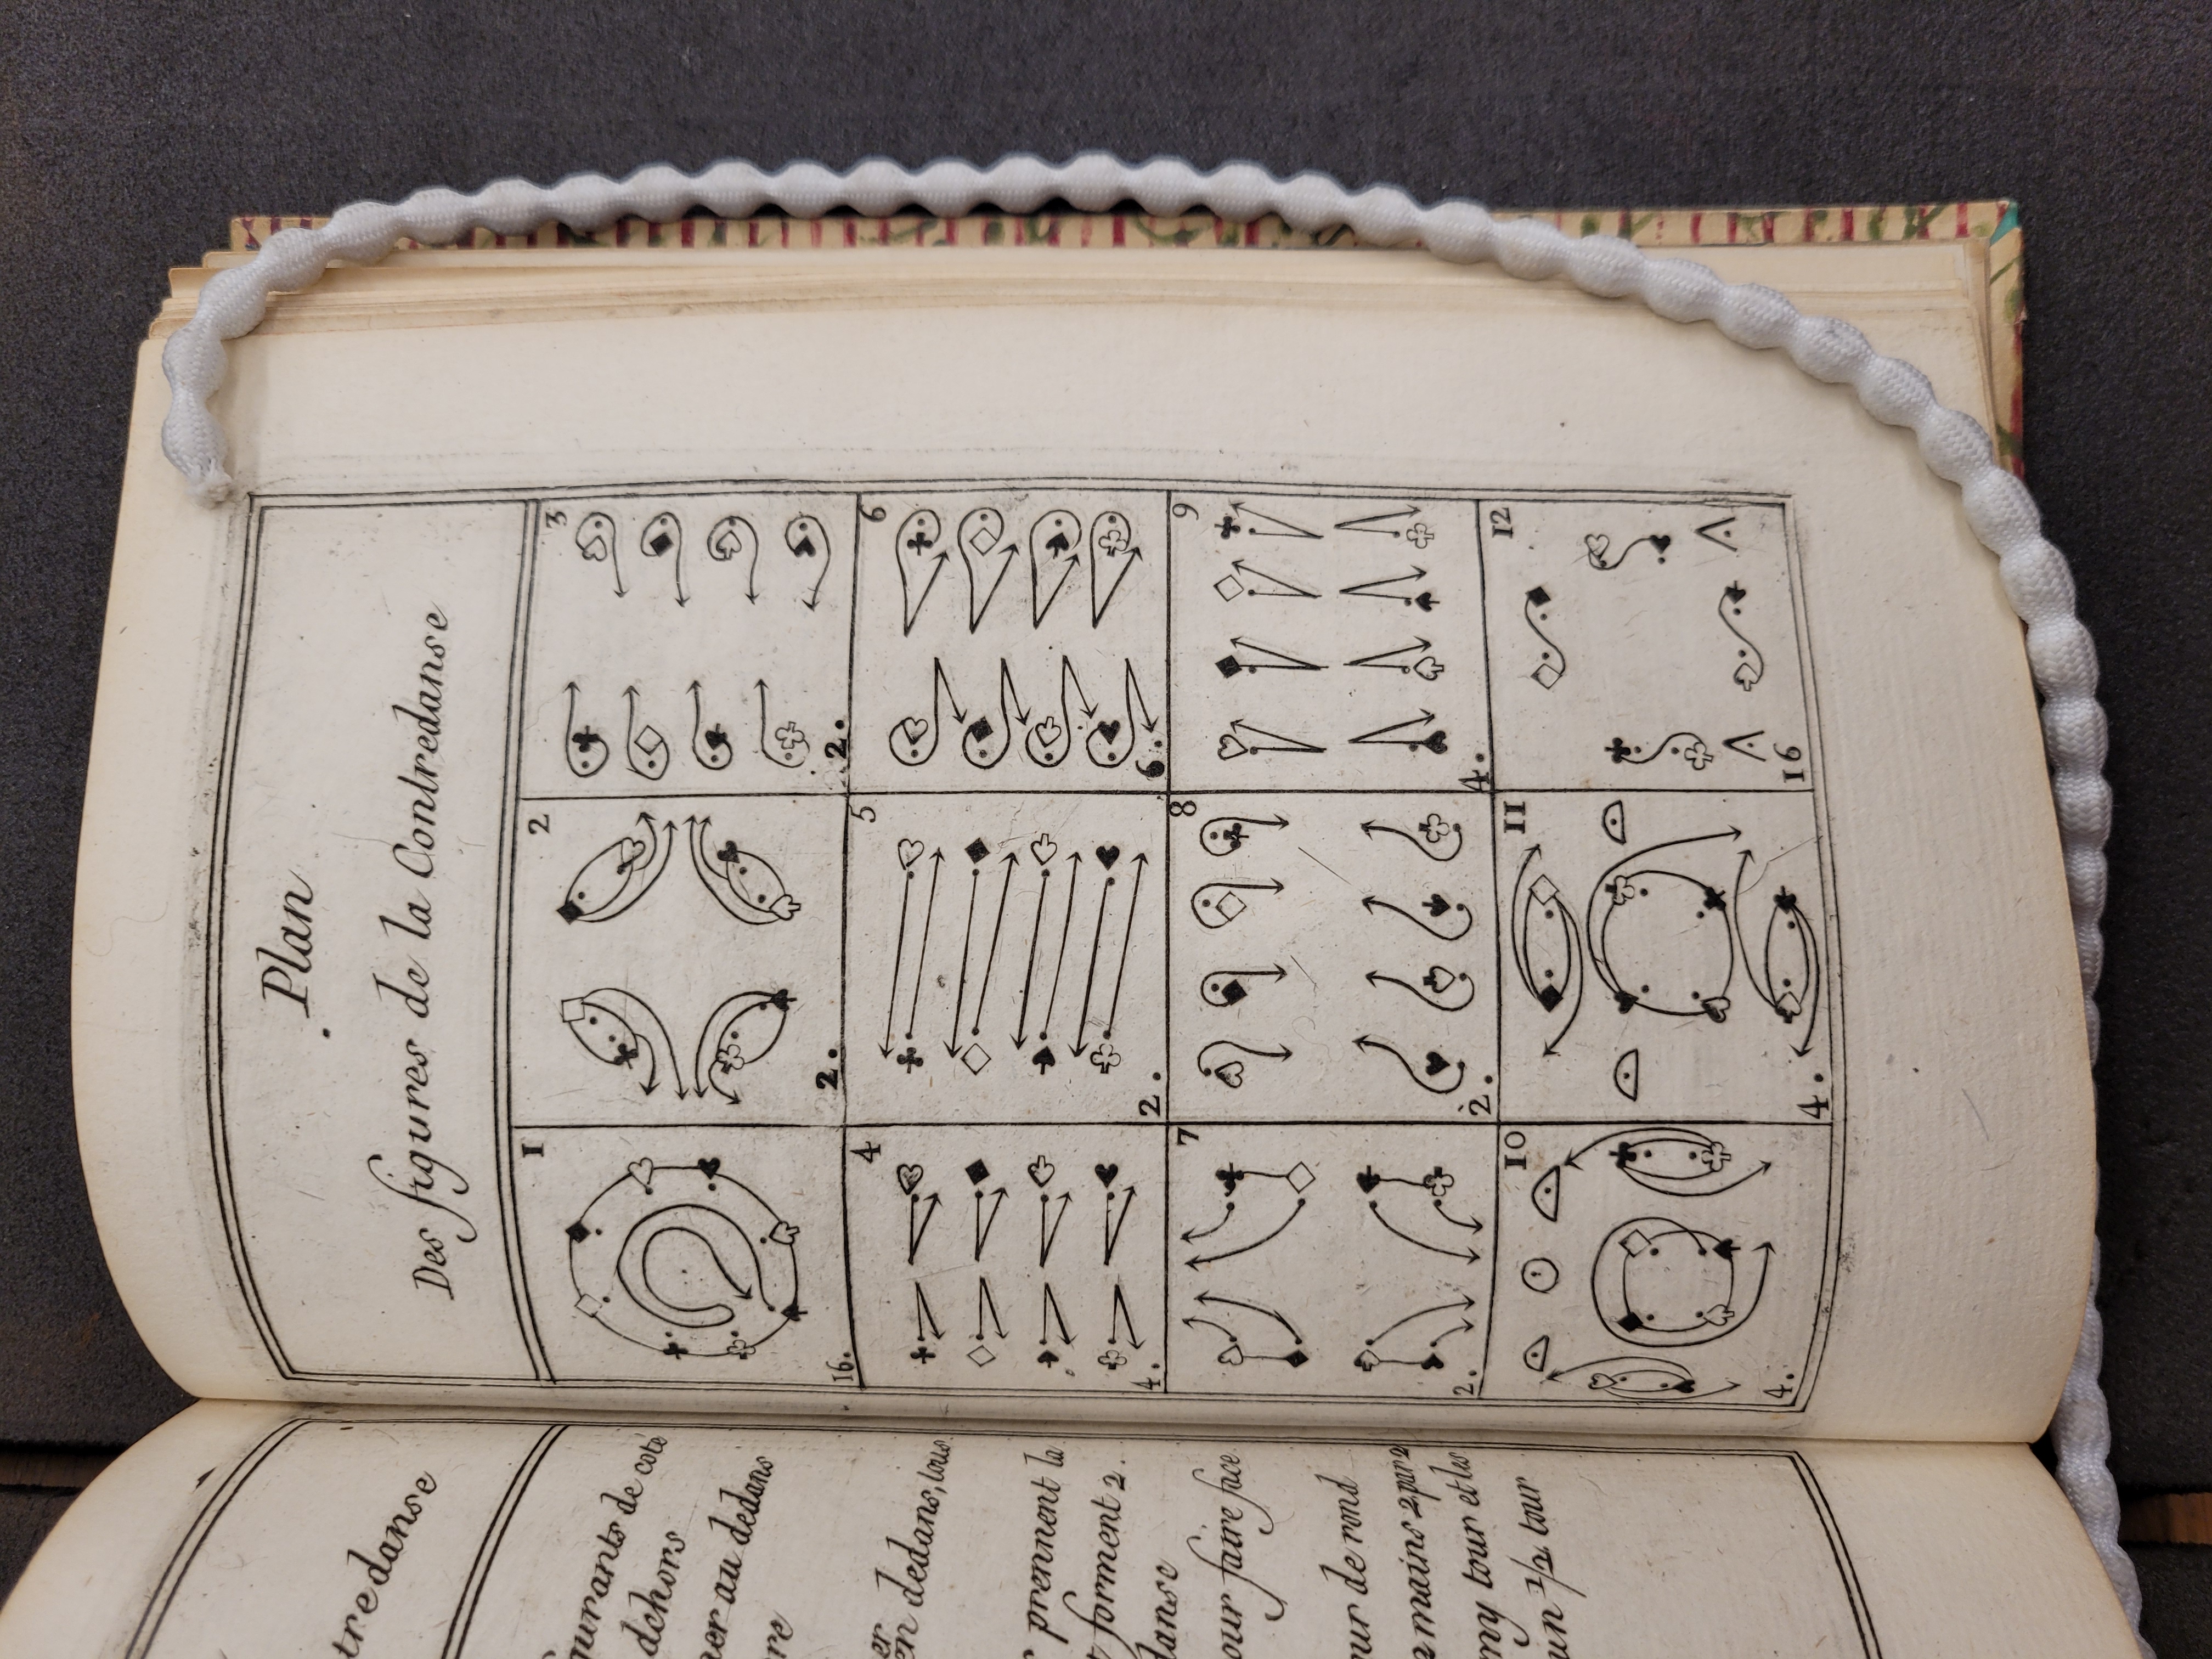 Plan
Des figures de la Contredanse
1
16.
2
2.
3
2.
4
4.
5
2.
6
6.
7
2.
8
2.
9
4.
10
4.
11
4.
12
16
tredanse
de coté
dehors
au dedans
en dedans, tous
prennent la
forment 2.
danse
faire face
de rond
mains 2 par 2
my tour et les
un 1/2 tour